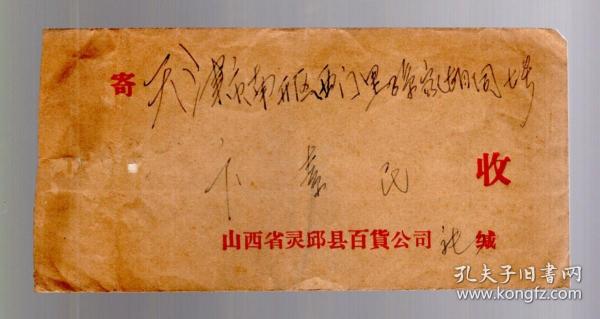 寄 天津市南开区西门里石家胡同七号
卞 慕 民 收
山西省灵邱县百貨公司 缄
孔夫子旧书网
www.kongfz.com